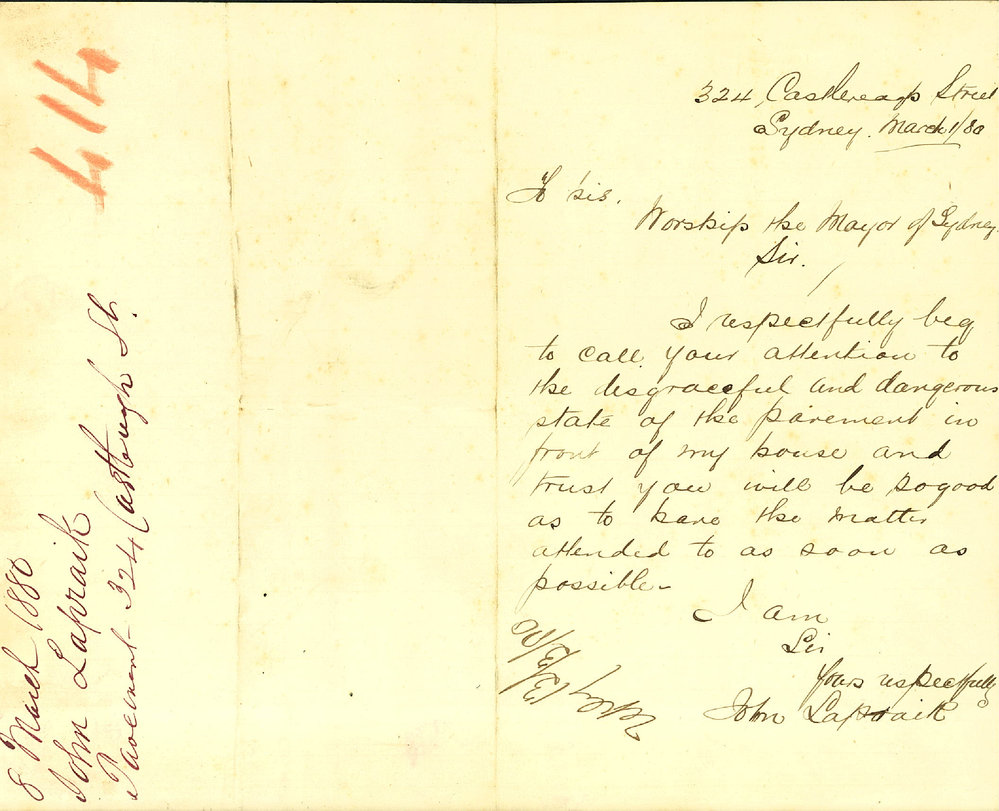 414
8 March 1880
John Lapraik
Pavement 324 Castlereagh St.
324 Castlereagh Street
Sydney. March 1/80
To his.
Worship the Mayor of Sydney.
Sir.
I respectfully beg
to call your attention to
the disgraceful and dangerous
state of the pavement in
front of my house and
trust you will be so good
as to have the matter
attended to as soon as
possible-
I am
Sir
Yours respectfully
John Lapraik